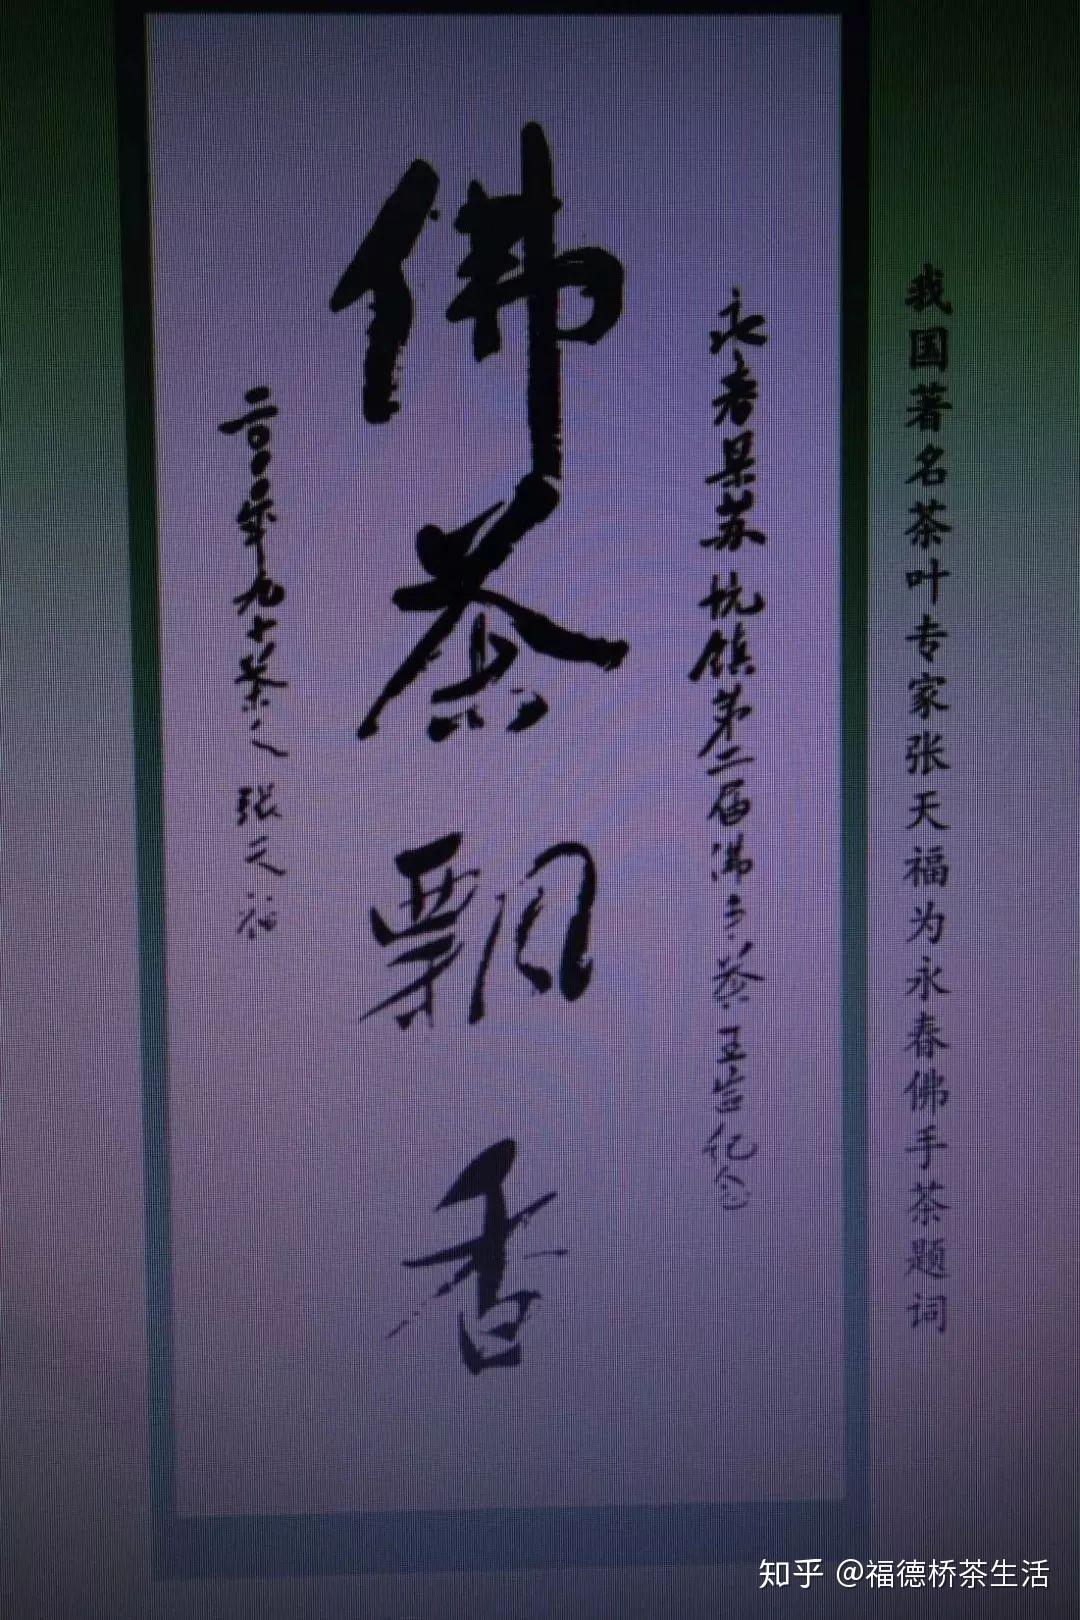 我国著名茶叶专家张天福为永春佛手茶题词
永春县苏坑镇第二届佛手茶王纪念
佛茶飘香
二〇〇〇年九十茶人张天福
知乎 @福德桥茶生活